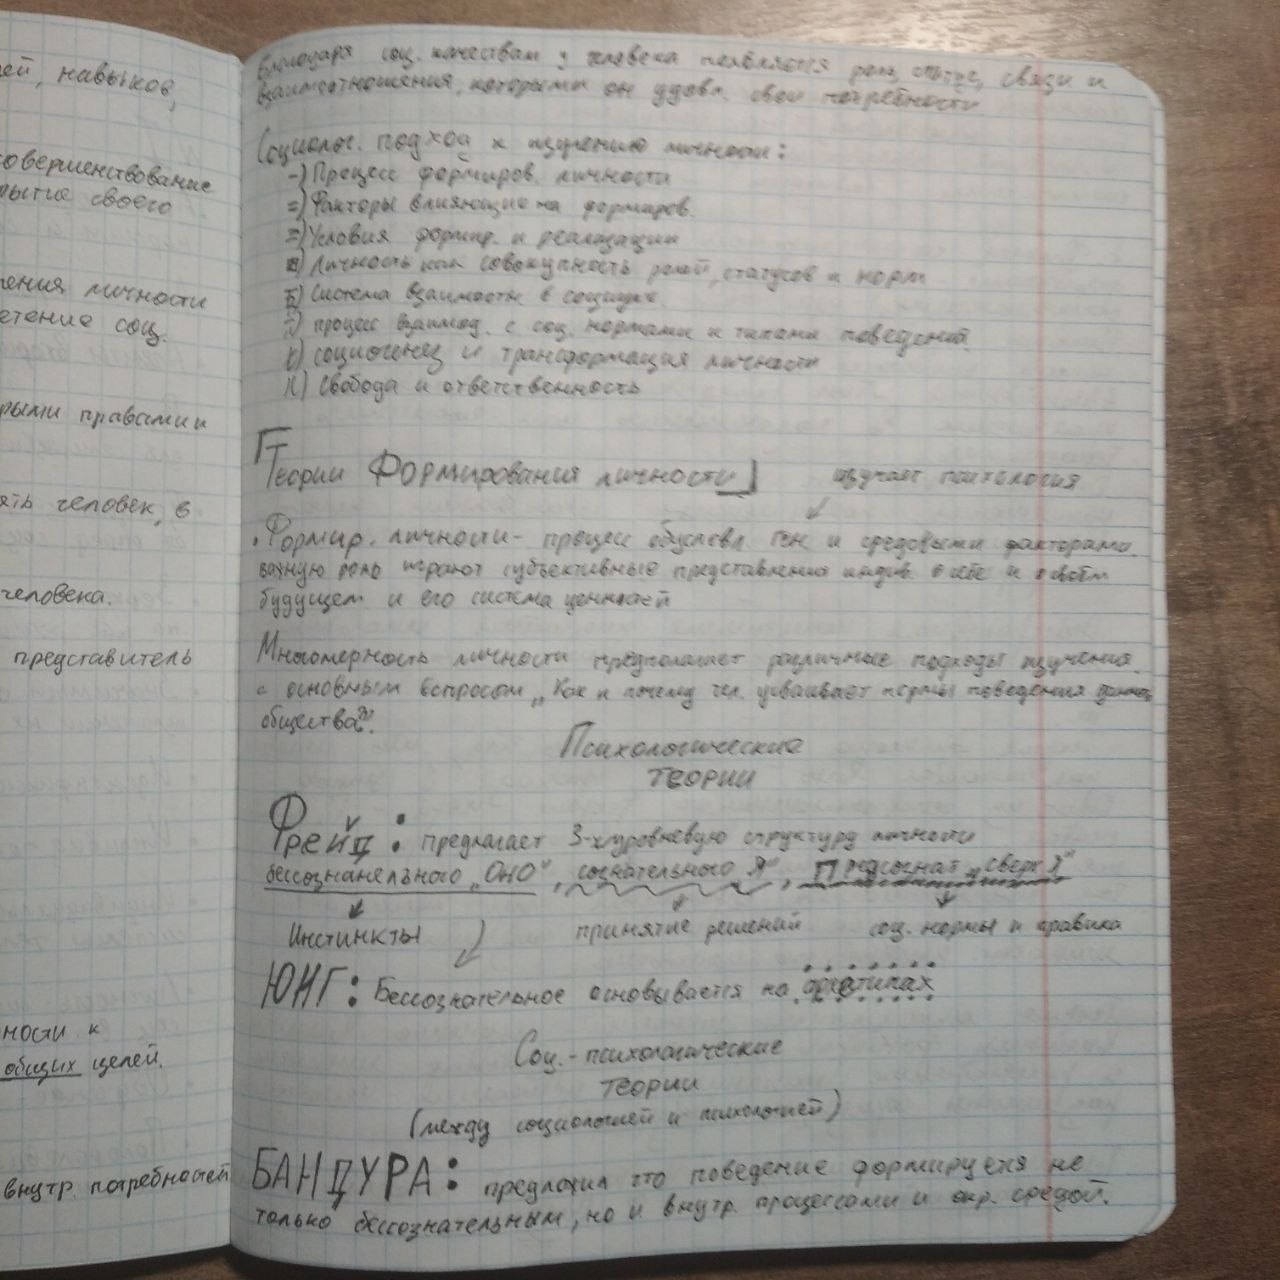 ей, навыков,
совершенствование
рытие своего
ения личности
етение соц.
рыми правами и
ять человек, в
человека.
представитель
ности к
общих целей.
внутр. потребностей
Благодаря соц. качествам у человека появляются роль, статус, связи и
взаимоотношения, которыми он удовл. свои потребности
Социолог. подход к изучению личности:
Процесс формиров. личности
Факторы влияющие на формиров.
Условия формир. и реализации
Личность как совокупность ролей, статусов и норм
Система взаимоств в социуме
процесс взаимод. с соц. нормами и типами поведений
социогенез и трансформация личности
Свобода и ответственность
Теории Формирования личности
изучает психология
Формир. личности - процесс обуслвл ген и средовыми факторами
важную роль играют субъективные представления индив. о себе и о своём
будущем и его система ценностей
Многомерность личности предполагает различные подходы изучения
с основным вопросом „Как и почему чел. усваивает нормы поведения
общества?"
Психологические
теории
Фрейд: предлагает 3-хуровневую структуру личности
бессознанельного „Оно", сознательного „Я", Предсознат „сверх Я"
Инстинкты принятие решений соц. нормы и правила
ЮНГ: Бессознательное основывается на архетипах
Соц.-психологические
теории
(между социологией и психологией)
БАНДУРА: предложил что поведение формируется не
только бессознательным, но и внутр. процессами и окр. средой.